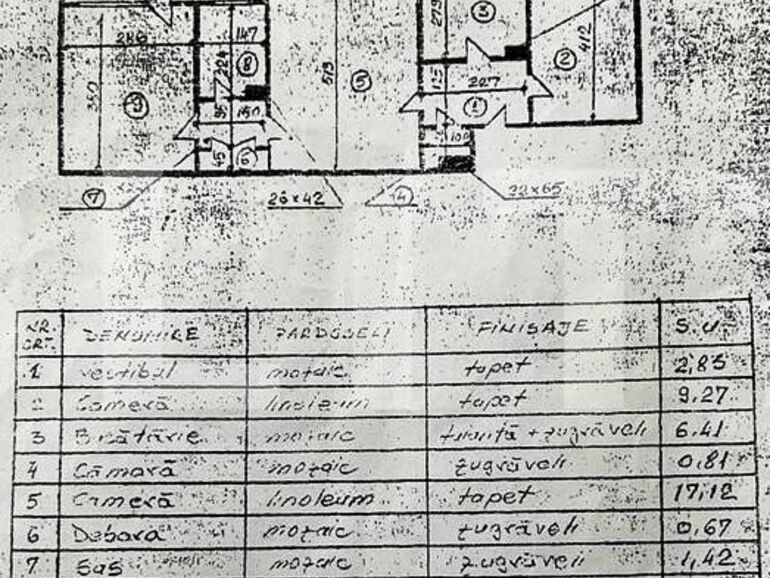 286
147
273
3
412
2
350
9
224
8
513
5
125
227
1
95
150
100
45
6
7
26×42
4
22×65
NR. CRT. DENUMIRE PARDOSELI FINISAJE S.U.
1 Vestibul mozaic tapet 2,85
2 Cameră linoleum tapet 9,27
3 Bucătărie mozaic faianță + zugrăveli 6,41
4 Cămară mozaic zugrăveli 0,81
5 Cameră linoleum tapet 17,12
6 Debara mozaic zugrăveli 0,67
7 Sas mozaic zugrăveli 1,42